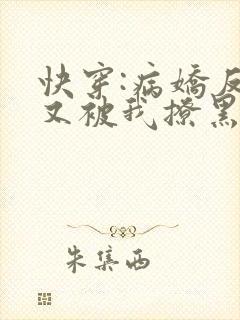 快穿:病娇反
又被我撩黑
朱集西